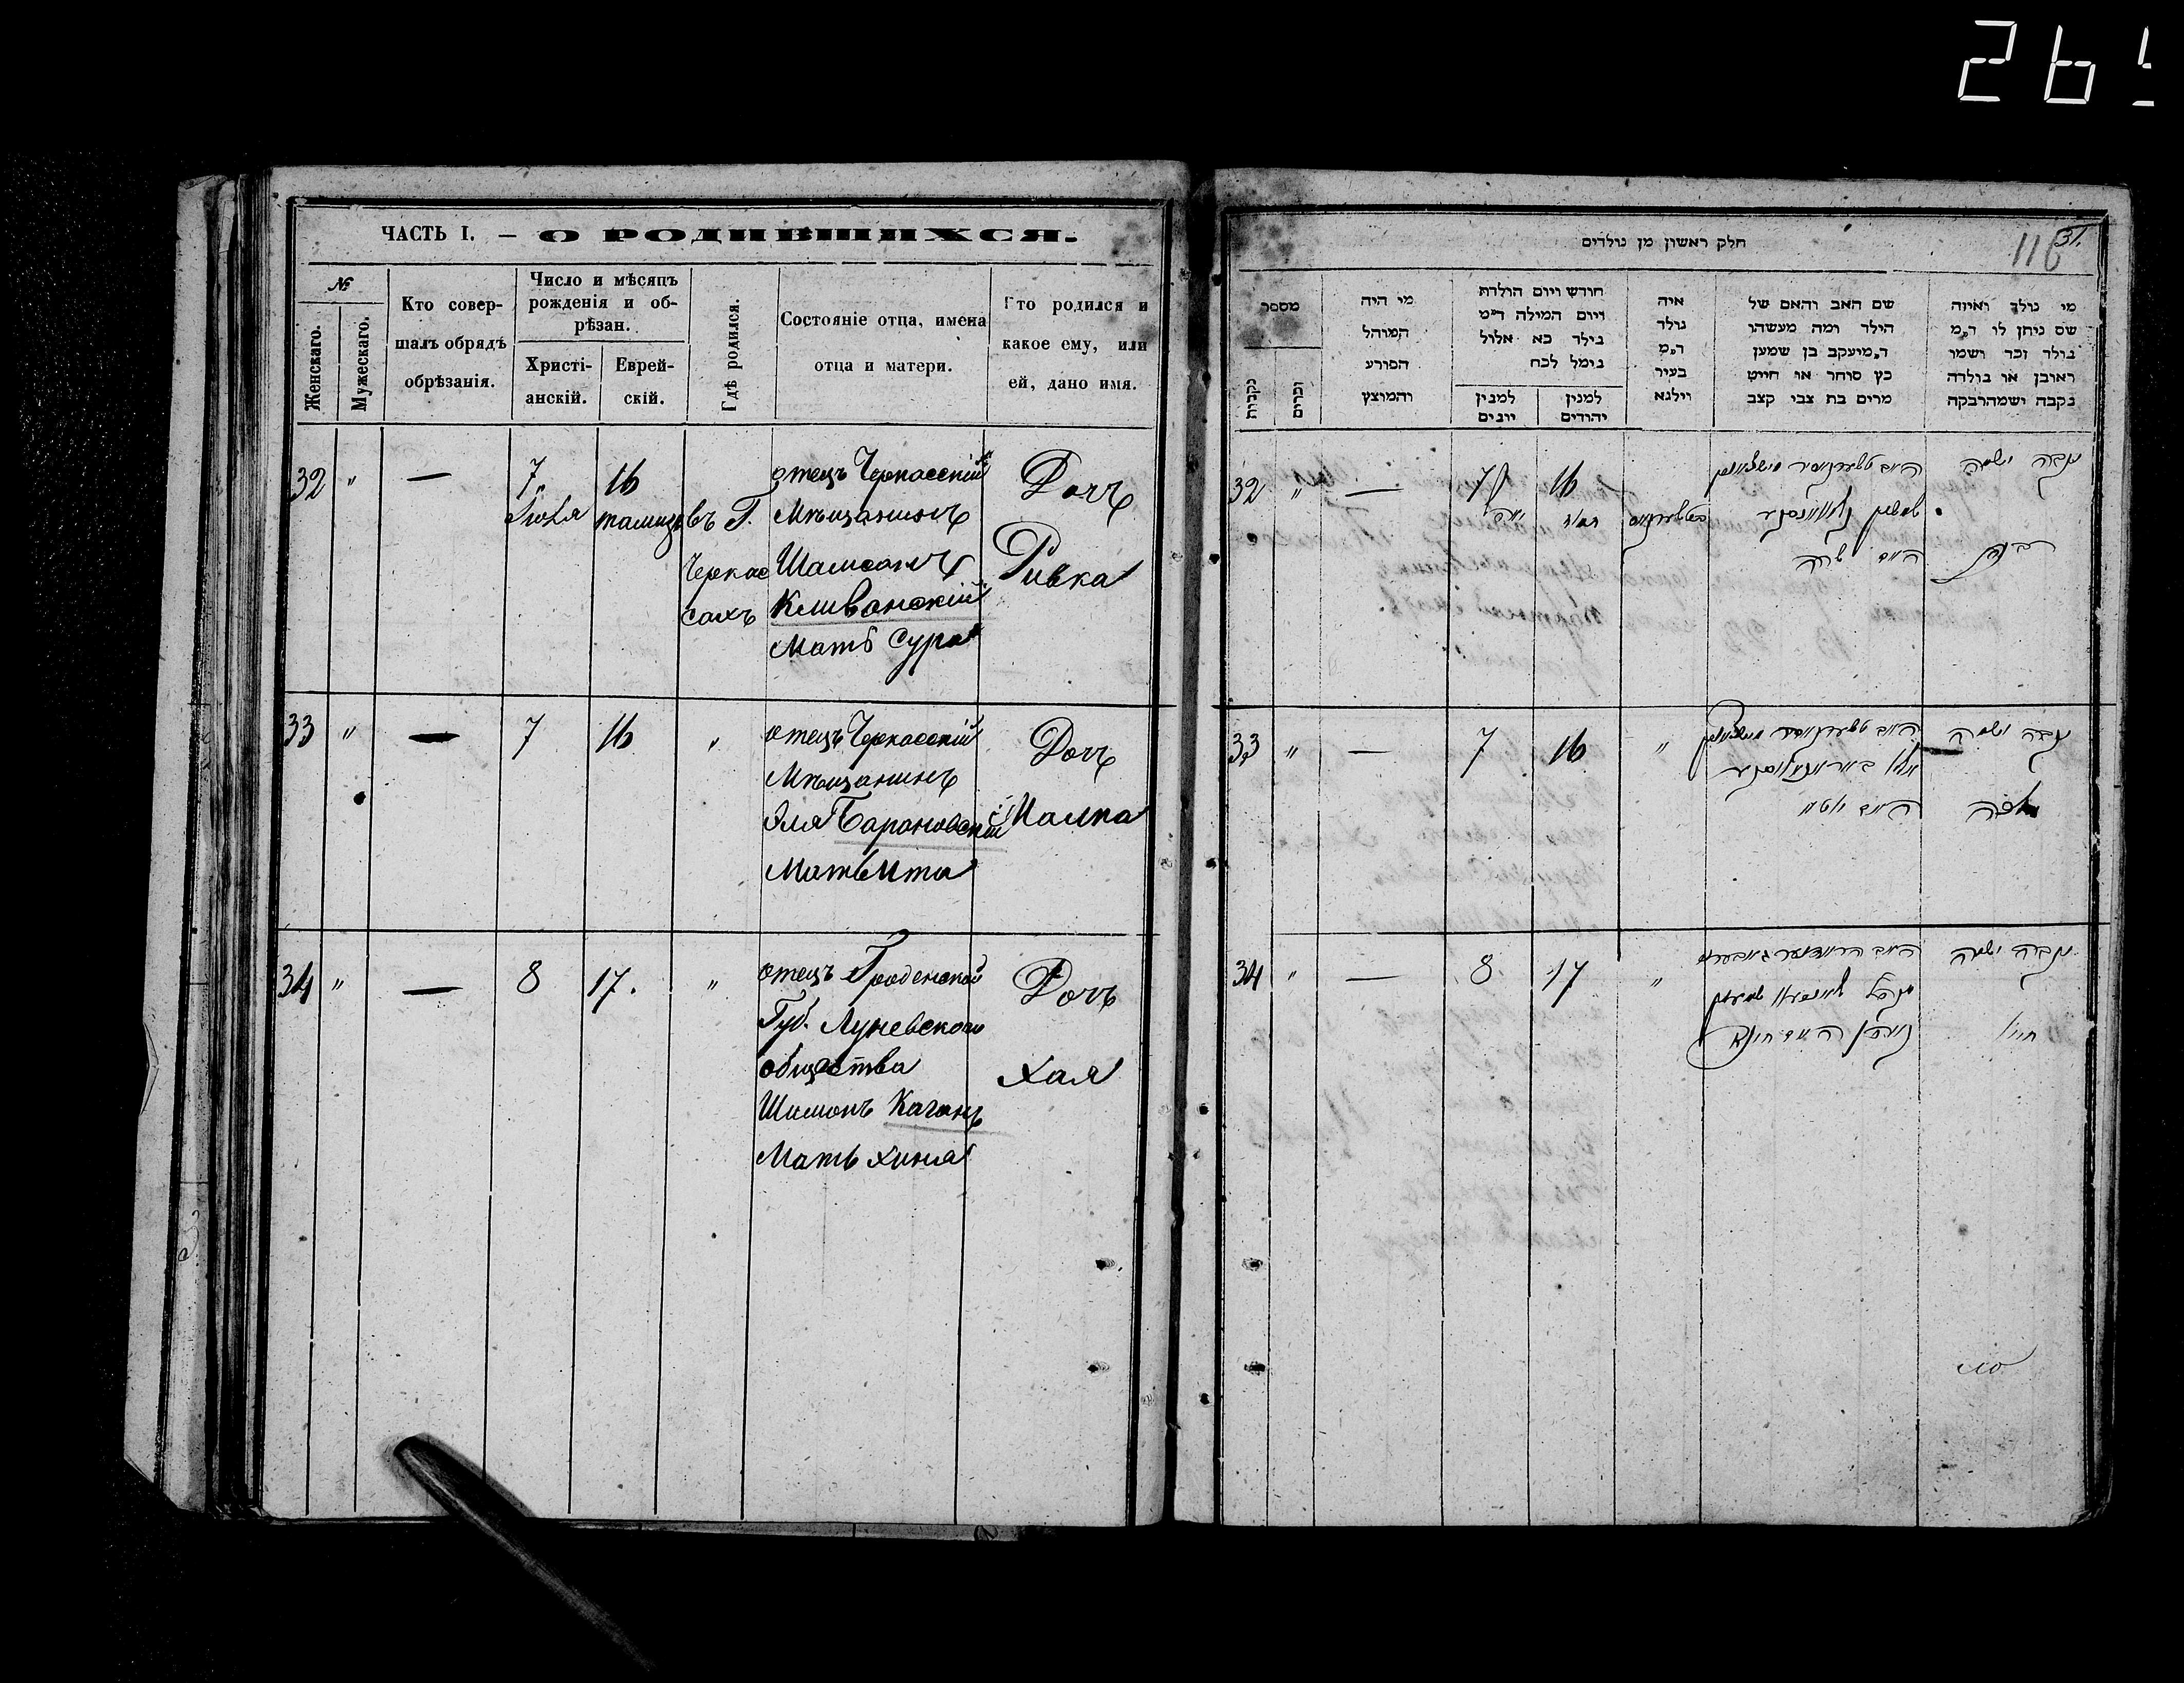 ЧАСТЬ I. — О РОДИВШИХСЯ.
№
Женскаго.
Мужескаго.
Кто совер-
шалъ обрядъ
обрѣзанія.
Число и мѣсяцъ
рожденія и об-
рѣзан.
Христі-
анскій.
Еврей-
скій.
Гдѣ родился.
Состояніе отца, имена
отца и матери.
Кто родился и
какое ему, или
ей, дано имя.
32 " — 7 16 отецъ Черкасскій Дочь
Іюля тамизъ въ Г. Мѣщанинъ
Черкас Шамсонъ Ривка
сахъ Кливанскій
Мать Сура
33 " — 7 16 " отецъ Черкасскій Дочь
Мѣщанинъ
Эля Барановскій Малка
Мать Ита
34 " — 8 17. " отецъ Гроденской Дочь
Губ. Луневского
общества Хая
Шимонъ Каганъ
Мать Хина
265
חלק ראשון מן נולדים
116
31.
מי נולד ואיזה
שם ניתן לו ד״מ
נולד זכר ושמו
ראובן או נולדה
נקבה ושמה רבקה
שם האב והאם של
הילד ומה מעשהו
ד״מ יעקב בן שמעון
כץ סוחר או חייט
מרים בת צבי קצב
איה
נולד
ד״מ
בעיר
ווילנא
חודש ויום הולדת
ויום המילה ד״מ
נולד כא אלול
נימל לכח
למנין
יהודים
למנין
יונים
מי היה
המוהל
הפורע
והמוצץ
מספר
זכרים
נקבות
32 " — 7 16 נקבה ושמה
יולי תמוז
רבקה
האם שרה
33 " — 7 16 " נקבה ושמה
מלכה
האם איטא
34 " — 8 17 " נקבה ושמה
חייא